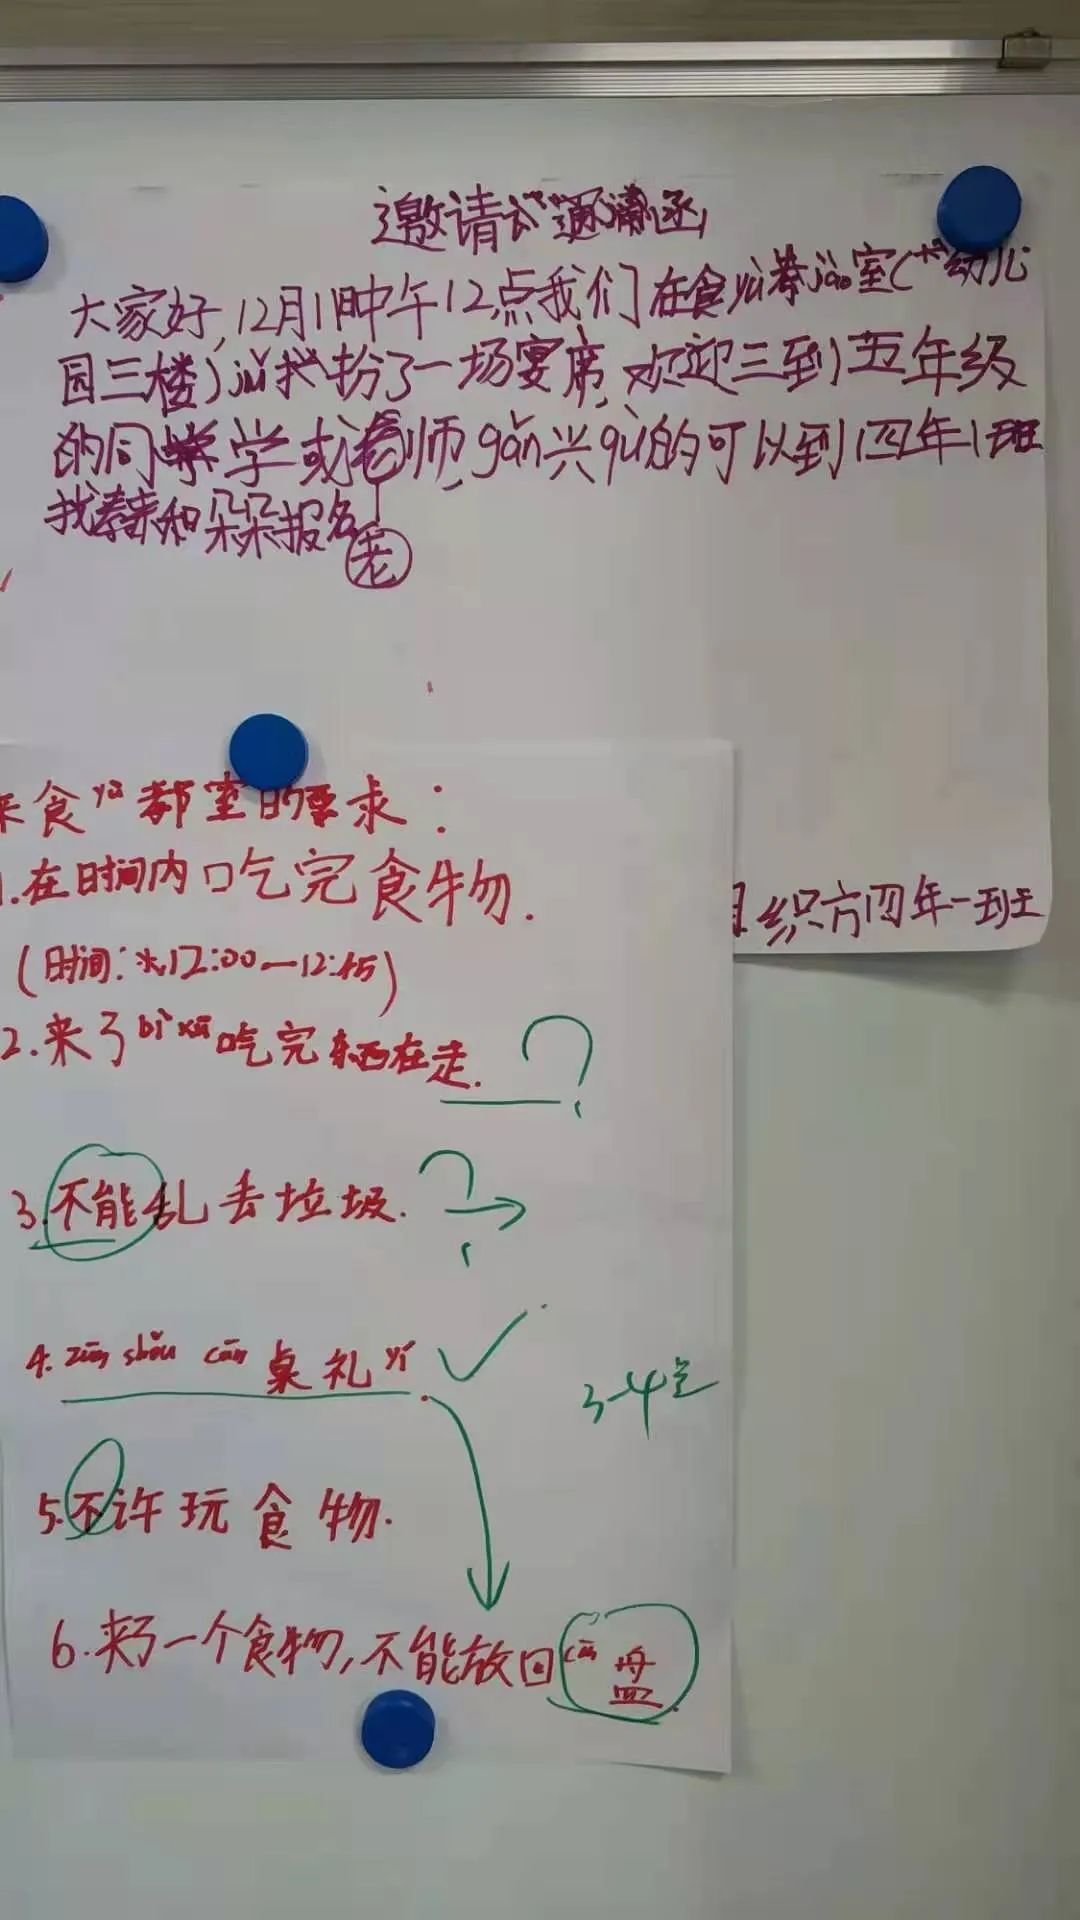 邀请函
大家好,12月1日中午12点我们在食yù教jiào室(幼儿
园三楼)jǔ扮了一场宴席,欢迎三到五年级
的同学或老师,gǎn兴qù的可以到四年1班
找秦和朵朵报名
老
织方四年一班
来食yù教室的要求:
1.在时间内吃完食物.
(时间:12:00—12:45)
2.来了bì xū吃完东西在走.
?
3.不能乱丢垃圾.
?
4.zūn shǒu cān桌礼yí.
3-4
5.不许玩食物.
6.来了一个食物,不能放回cān盘.